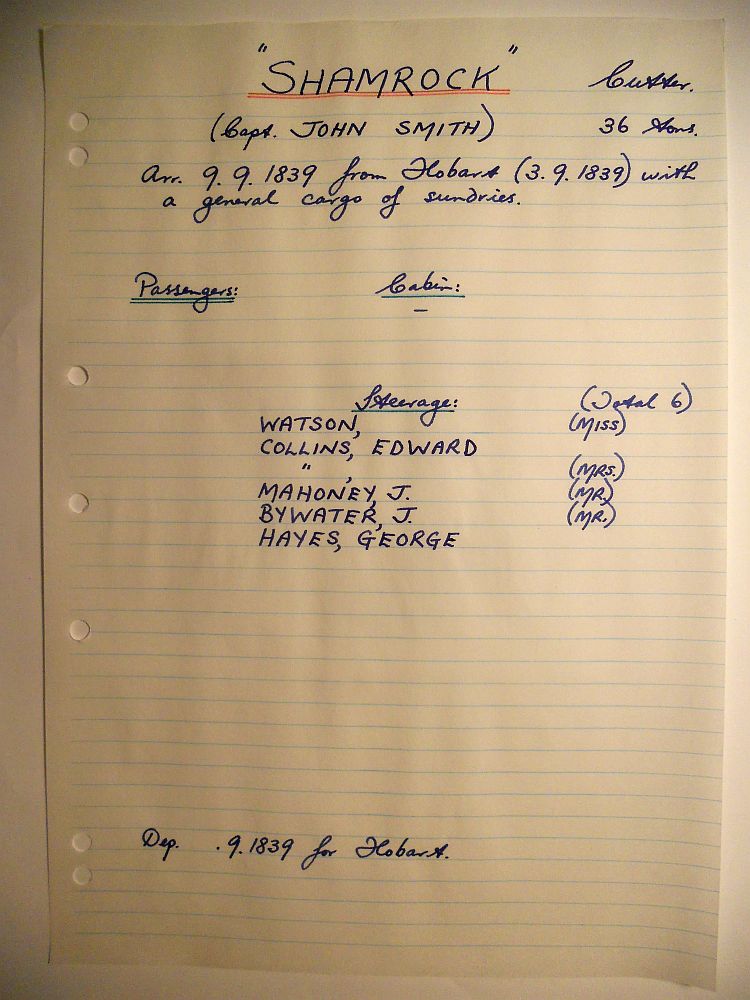 "SHAMROCK" Cutter.
(Capt. JOHN SMITH) 36 tons.
Arr. 9. 9. 1839 from Hobart (3. 9. 1839) with
a general cargo of sundries.
Passengers: Cabin:
–
Steerage: (Total 6)
WATSON, (MISS)
COLLINS, EDWARD
" , (MRS.)
MAHONEY, J. (MR.)
BYWATER, J. (MR.)
HAYES, GEORGE
Dep. .9.1839 for Hobart.